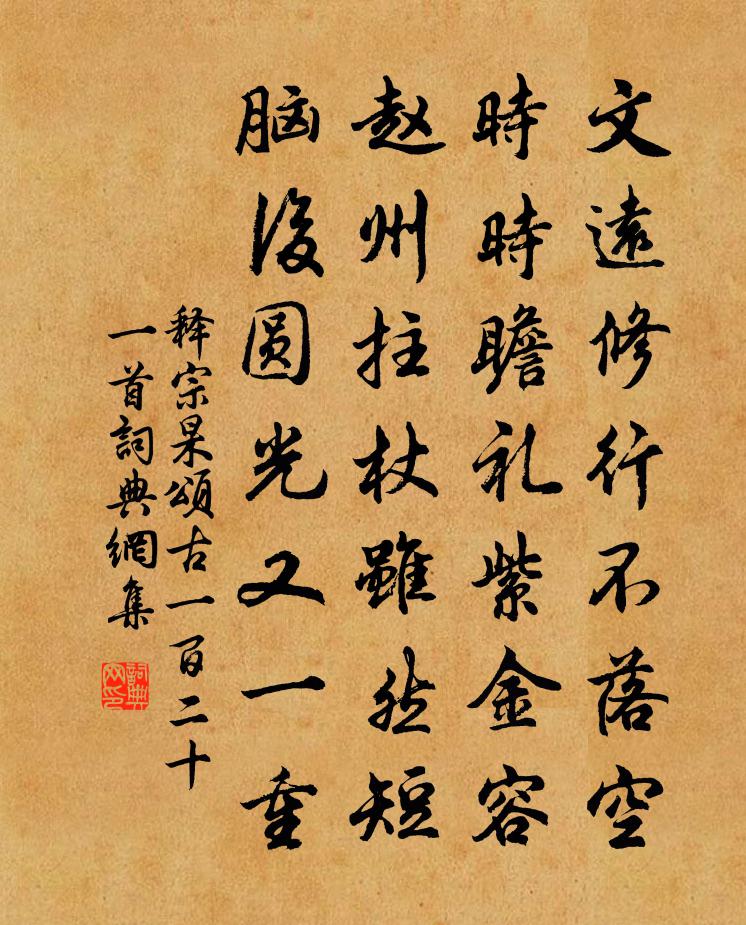 文遠修行不落空
時時瞻礼紫金容
赵州拄杖雖然短
脑後圆光又一重
释宗杲頌古一百二十
一首詞典網集
詞典
网印